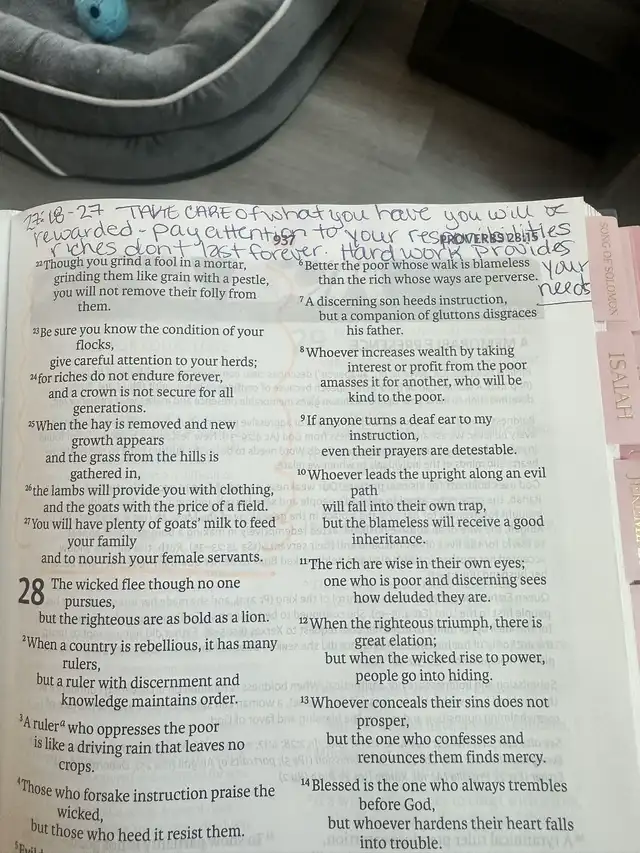 27:18-27 TAKE CARE of what you have you will be
rewarded - pay attention to your responsibilities
riches don't last forever. Hard work provides
your
needs
937
PROVERBS 28:15
22Though you grind a fool in a mortar,
grinding them like grain with a pestle,
you will not remove their folly from
them.
23Be sure you know the condition of your
flocks,
give careful attention to your herds;
24for riches do not endure forever,
and a crown is not secure for all
generations.
25When the hay is removed and new
growth appears
and the grass from the hills is
gathered in,
26the lambs will provide you with clothing,
and the goats with the price of a field.
27You will have plenty of goats' milk to feed
your family
and to nourish your female servants.
28 The wicked flee though no one
pursues,
but the righteous are as bold as a lion.
2When a country is rebellious, it has many
rulers,
but a ruler with discernment and
knowledge maintains order.
3A rulera who oppresses the poor
is like a driving rain that leaves no
crops.
4Those who forsake instruction praise the
wicked,
but those who heed it resist them.
6Better the poor whose walk is blameless
than the rich whose ways are perverse.
7A discerning son heeds instruction,
but a companion of gluttons disgraces
his father.
8Whoever increases wealth by taking
interest or profit from the poor
amasses it for another, who will be
kind to the poor.
9If anyone turns a deaf ear to my
instruction,
even their prayers are detestable.
10Whoever leads the upright along an evil
path
will fall into their own trap,
but the blameless will receive a good
inheritance.
11The rich are wise in their own eyes;
one who is poor and discerning sees
how deluded they are.
12When the righteous triumph, there is
great elation;
but when the wicked rise to power,
people go into hiding.
13Whoever conceals their sins does not
prosper,
but the one who confesses and
renounces them finds mercy.
14Blessed is the one who always trembles
before God,
but whoever hardens their heart falls
into trouble.
SONG OF SOLOMON
ISAIAH